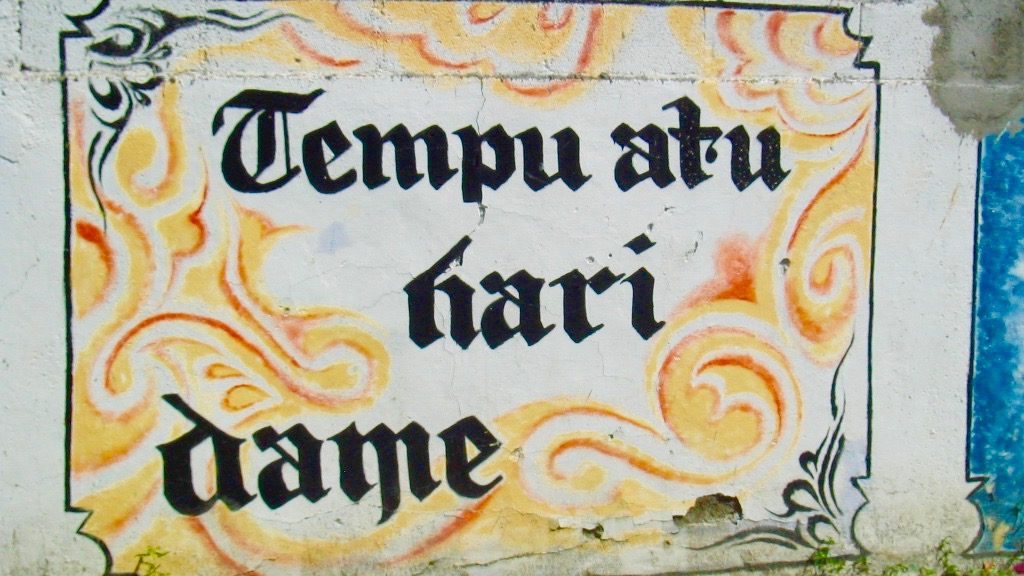 Tempu atu
hari
dame